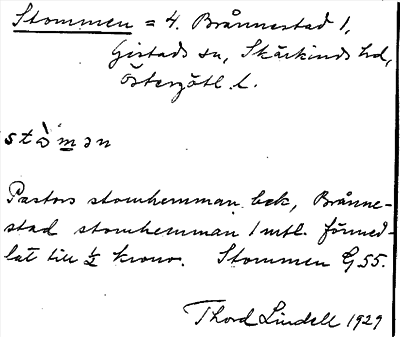 Stommen = 4. Brånnestad 1,
Gistads sn, Skärkinds hd,
Östergötl. l.
stò̀mən
Pastors stomhemman, bek, Brånne-
stad stomhemman 1 mtl. förmed-
lat till ½ krono. Stommen G 55.
Thord Lindell 1929